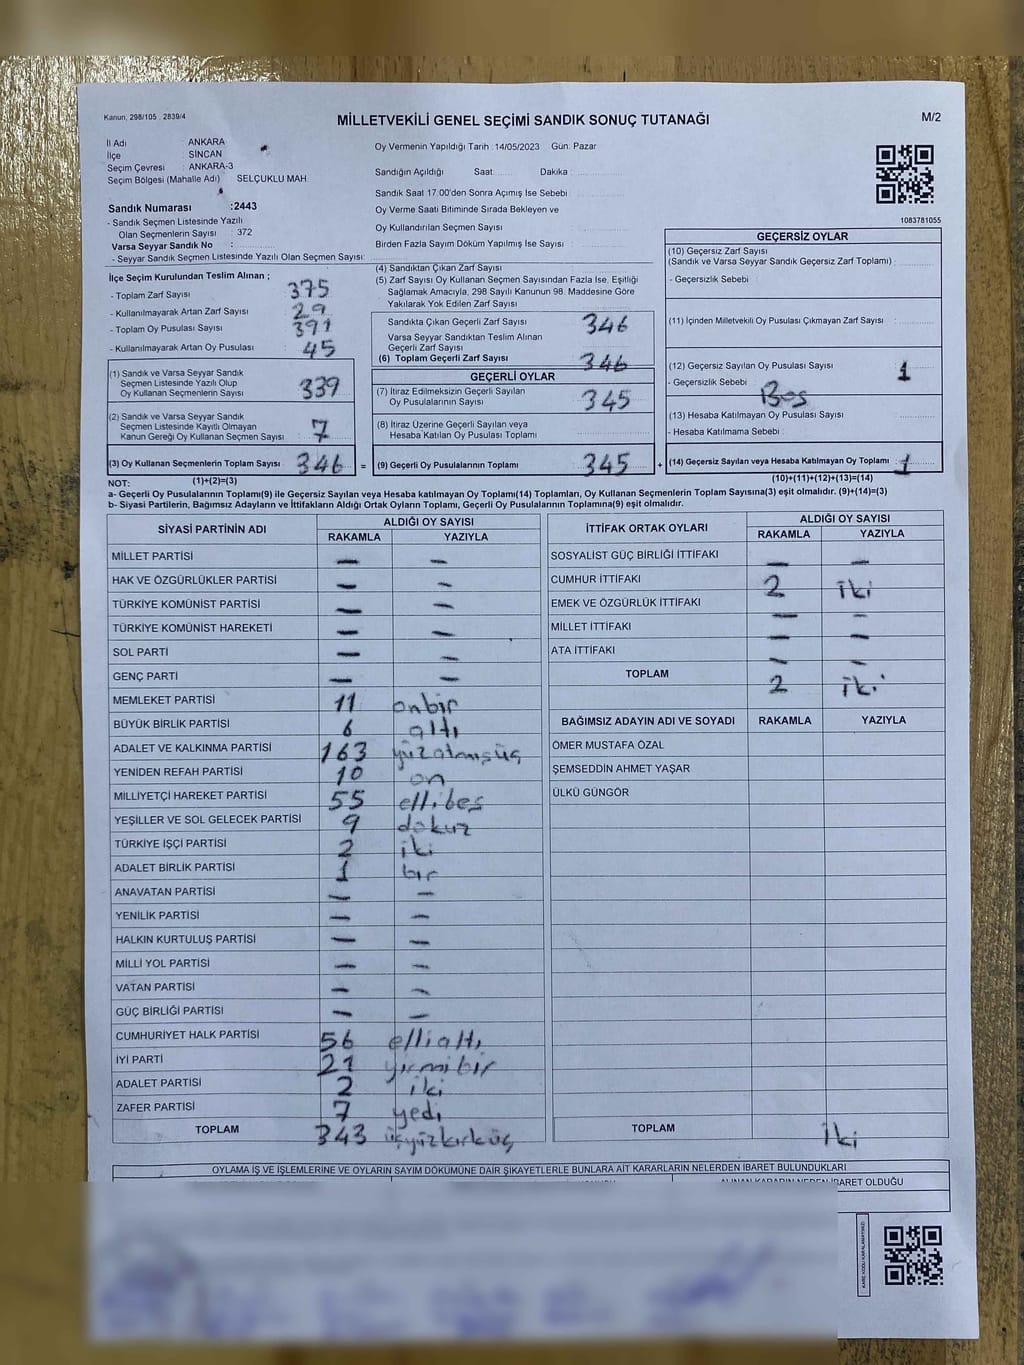 Kanun, 298/105 . 2839/4
MİLLETVEKİLİ GENEL SEÇİMİ SANDIK SONUÇ TUTANAĞI
M/2
İl Adı ANKARA
İlçe SİNCAN
Seçim Çevresi : ANKARA-3
Seçim Bölgesi (Mahalle Adı) SELÇUKLU MAH.
Sandık Numarası :2443
- Sandık Seçmen Listesinde Yazılı
Olan Seçmenlerin Sayısı : 372
Varsa Seyyar Sandık No :
- Seyyar Sandık Seçmen Listesinde Yazılı Olan Seçmen Sayısı:
Oy Vermenin Yapıldığı Tarih :14/05/2023 Gün: Pazar
Sandığın Açıldığı Saat Dakika
Sandık Saat 17.00'den Sonra Açımış İse Sebebi
Oy Verme Saati Bitiminde Sırada Bekleyen ve
Oy Kullandırılan Seçmen Sayısı
Birden Fazla Sayım Döküm Yapılmış İse Sayısı :
1083781055
İlçe Seçim Kurulundan Teslim Alınan ;
- Toplam Zarf Sayısı 375
- Kullanılmayarak Artan Zarf Sayısı : 29
- Toplam Oy Pusulası Sayısı 391
- Kullanılmayarak Artan Oy Pusulası 45
(1) Sandık ve Varsa Seyyar Sandık
Seçmen Listesinde Yazılı Olup
Oy Kullanan Seçmenlerin Sayısı 339
(2) Sandık ve Varsa Seyyar Sandık
Seçmen Listesinde Kayıtlı Olmayan
Kanun Gereği Oy Kullanan Seçmen Sayısı 7
(3) Oy Kullanan Seçmenlerin Toplam Sayısı 346 =
(4) Sandıktan Çıkan Zarf Sayısı
(5) Zarf Sayısı Oy Kullanan Seçmen Sayısından Fazla İse, Eşitliği
Sağlamak Amacıyla, 298 Sayılı Kanunun 98. Maddesine Göre
Yakılarak Yok Edilen Zarf Sayısı
Sandıkta Çıkan Geçerli Zarf Sayısı 346
Varsa Seyyar Sandıktan Teslim Alınan
Geçerli Zarf Sayısı
(6) Toplam Geçerli Zarf Sayısı 346
GEÇERLİ OYLAR
(7) İtiraz Edilmeksizin Geçerli Sayılan
Oy Pusulalarının Sayısı 345
(8) İtiraz Üzerine Geçerli Sayılan veya
Hesaba Katılan Oy Pusulası Toplamı
(9) Geçerli Oy Pusulalarının Toplamı 345 +
GEÇERSİZ OYLAR
(10) Geçersiz Zarf Sayısı
(Sandık ve Varsa Seyyar Sandık Geçersiz Zarf Toplamı) :
- Geçersizlik Sebebi
(11) İçinden Milletvekili Oy Pusulası Çıkmayan Zarf Sayısı :
(12) Geçersiz Sayılan Oy Pusulası Sayısı 1
- Geçersizlik Sebebi Boş
(13) Hesaba Katılmayan Oy Pusulası Sayısı
- Hesaba Katılmama Sebebi :
(14) Geçersiz Sayılan veya Hesaba Katılmayan Oy Toplamı 1
NOT: (1)+(2)=(3) (10)+(11)+(12)+(13)=(14)
a- Geçerli Oy Pusulalarının Toplamı(9) ile Geçersiz Sayılan veya Hesaba katılmayan Oy Toplamı(14) Toplamları, Oy Kullanan Seçmenlerin Toplam Sayısına(3) eşit olmalıdır. (9)+(14)=(3)
b- Siyasi Partilerin, Bağımsız Adayların ve İttifakların Aldığı Ortak Oyların Toplamı, Geçerli Oy Pusulalarının Toplamına(9) eşit olmalıdır.
SİYASİ PARTİNİN ADI ALDIĞI OY SAYISI
RAKAMLA YAZIYLA
MİLLET PARTİSİ — —
HAK VE ÖZGÜRLÜKLER PARTİSİ — —
TÜRKİYE KOMÜNİST PARTİSİ — —
TÜRKİYE KOMÜNİST HAREKETİ — —
SOL PARTİ — —
GENÇ PARTİ — —
MEMLEKET PARTİSİ 11 onbir
BÜYÜK BİRLİK PARTİSİ 6 altı
ADALET VE KALKINMA PARTİSİ 163 yüzatmışüç
YENİDEN REFAH PARTİSİ 10 on
MİLLİYETÇİ HAREKET PARTİSİ 55 ellibeş
YEŞİLLER VE SOL GELECEK PARTİSİ 9 dokuz
TÜRKİYE İŞÇİ PARTİSİ 2 iki
ADALET BİRLİK PARTİSİ 1 bir
ANAVATAN PARTİSİ — —
YENİLİK PARTİSİ — —
HALKIN KURTULUŞ PARTİSİ — —
MİLLİ YOL PARTİSİ — —
VATAN PARTİSİ — —
GÜÇ BİRLİĞİ PARTİSİ — —
CUMHURİYET HALK PARTİSİ 56 ellialtı
İYİ PARTİ 21 yirmibir
ADALET PARTİSİ 2 iki
ZAFER PARTİSİ 7 yedi
TOPLAM 343 üçyüzkırküç
İTTİFAK ORTAK OYLARI ALDIĞI OY SAYISI
RAKAMLA YAZIYLA
SOSYALİST GÜÇ BİRLİĞİ İTTİFAKI — —
CUMHUR İTTİFAKI 2 iki
EMEK VE ÖZGÜRLÜK İTTİFAKI — —
MİLLET İTTİFAKI — —
ATA İTTİFAKI — —
TOPLAM 2 iki
BAĞIMSIZ ADAYIN ADI VE SOYADI RAKAMLA YAZIYLA
ÖMER MUSTAFA ÖZAL
ŞEMSEDDİN AHMET YAŞAR
ÜLKÜ GÜNGÖR
TOPLAM iki
OYLAMA İŞ VE İŞLEMLERİNE VE OYLARIN SAYIM DÖKÜMÜNE DAİR ŞİKAYETLERLE BUNLARA AİT KARARLARIN NELERDEN İBARET BULUNDUKLARI
ALINAN KARARIN NEDEN İBARET OLDUĞU